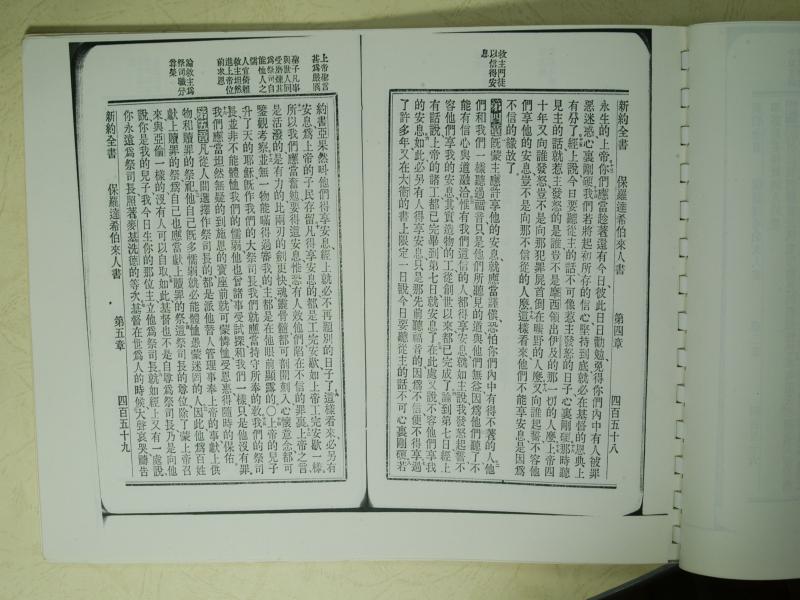 新約全書 保羅達希伯來人書 第四章 四百五十八
救主門徒
以信得安
息
永生的上帝你們應當趁著還有今日彼此日日勸勉免得你們內中有人被罪
惡迷惑心裏剛硬我們若將起初所存的信心堅持到底就必在基督的恩典上
有分了經上說今日要聽從主的話不可像惹主發怒的日子心裏剛硬那時聽
見主的話就惹主發怒的是誰豈不是摩西領出伊及的那一切的人麼上帝四
十年又向誰發怒豈不是向那犯罪屍首倒在曠野的人麼又向誰起誓不容他
們享他的安息豈不是向那不信從的人麼這樣看來他們不能享安息是因爲
不信的緣故了
第四章旣蒙主應許享他的安息就應當謹愼恐怕你們內中有得不著的人他
們和我們一樣聽過福音只是他們所聽見的道與他們無益因爲他們聽了不
能有信心與道融洽惟有我們這信的人都得享安息就如主說我發怒起誓不
容他們享我的安息其實造物的工從創世以來都已完成了論到第七日經上
有話說上帝的諸工都已完畢到第七日就安息了在此處又說不容他們享我
的安息如此必另有人得享安息只是那先前聽福音的因爲不信便不得享過
了許多年又在大衛的書上限定一日說今日要聽從主的話不可心裏剛硬若
上帝聖言
甚爲嚴厲
聖子凡事
與世人同
受磨煉其
爲祭司自
能恤人之
懦
人宜倚賴
救主坦然
進上帝位
前求恩
論救主爲
祭司職分
尊榮
約書亞果然叫他們得享安息經上就必不再題別的日子了這樣看來必另有
安息爲上帝的子民存留凡得享安息的都是工完安歇如上帝工完安歇一樣
所以我們應當奮勉要得這安息惟恐有人效他們陷在不信的罪裏上帝之言
是活潑的是有力的比兩刃的劍更快魂靈骨髓都可剖開刻入心懷意念都可
鑒觀考察並無一物能瞞得過審我的主都是在他眼前顯露的〇上帝的兒子
升了天的耶穌旣作我們的大祭司長我們就應當持守所奉的敎我們的祭司
長並非不能體恤我們的懦弱他也曾諸事受試探和我們一樣只是他沒有罪
我們應當坦然無疑的到施恩的寶座前就可蒙憐恤受恩惠得隨時的保佑
第五章凡從人間選擇作祭司長的都是派他替人管理事奉上帝的事獻上供
物和贖罪的祭祀他自己旣多懦弱就必能體恤愚蒙迷罔的人因此他爲百姓
獻上贖罪的祭爲自己也應當獻上贖罪的祭這祭司長的尊位除了蒙上帝召
來與亞倫一樣的沒有人可以自取如此基督也不是自尊爲祭司長乃是向他
說你是我的兒子我今日生你的那位主立他爲祭司長就如經上又有一處說
你永遠爲祭司長照著麥基洗德的等次基督在世爲人的時候大聲哀哭禱告
新約全書 保羅達希伯來人書 第五章 四百五十九